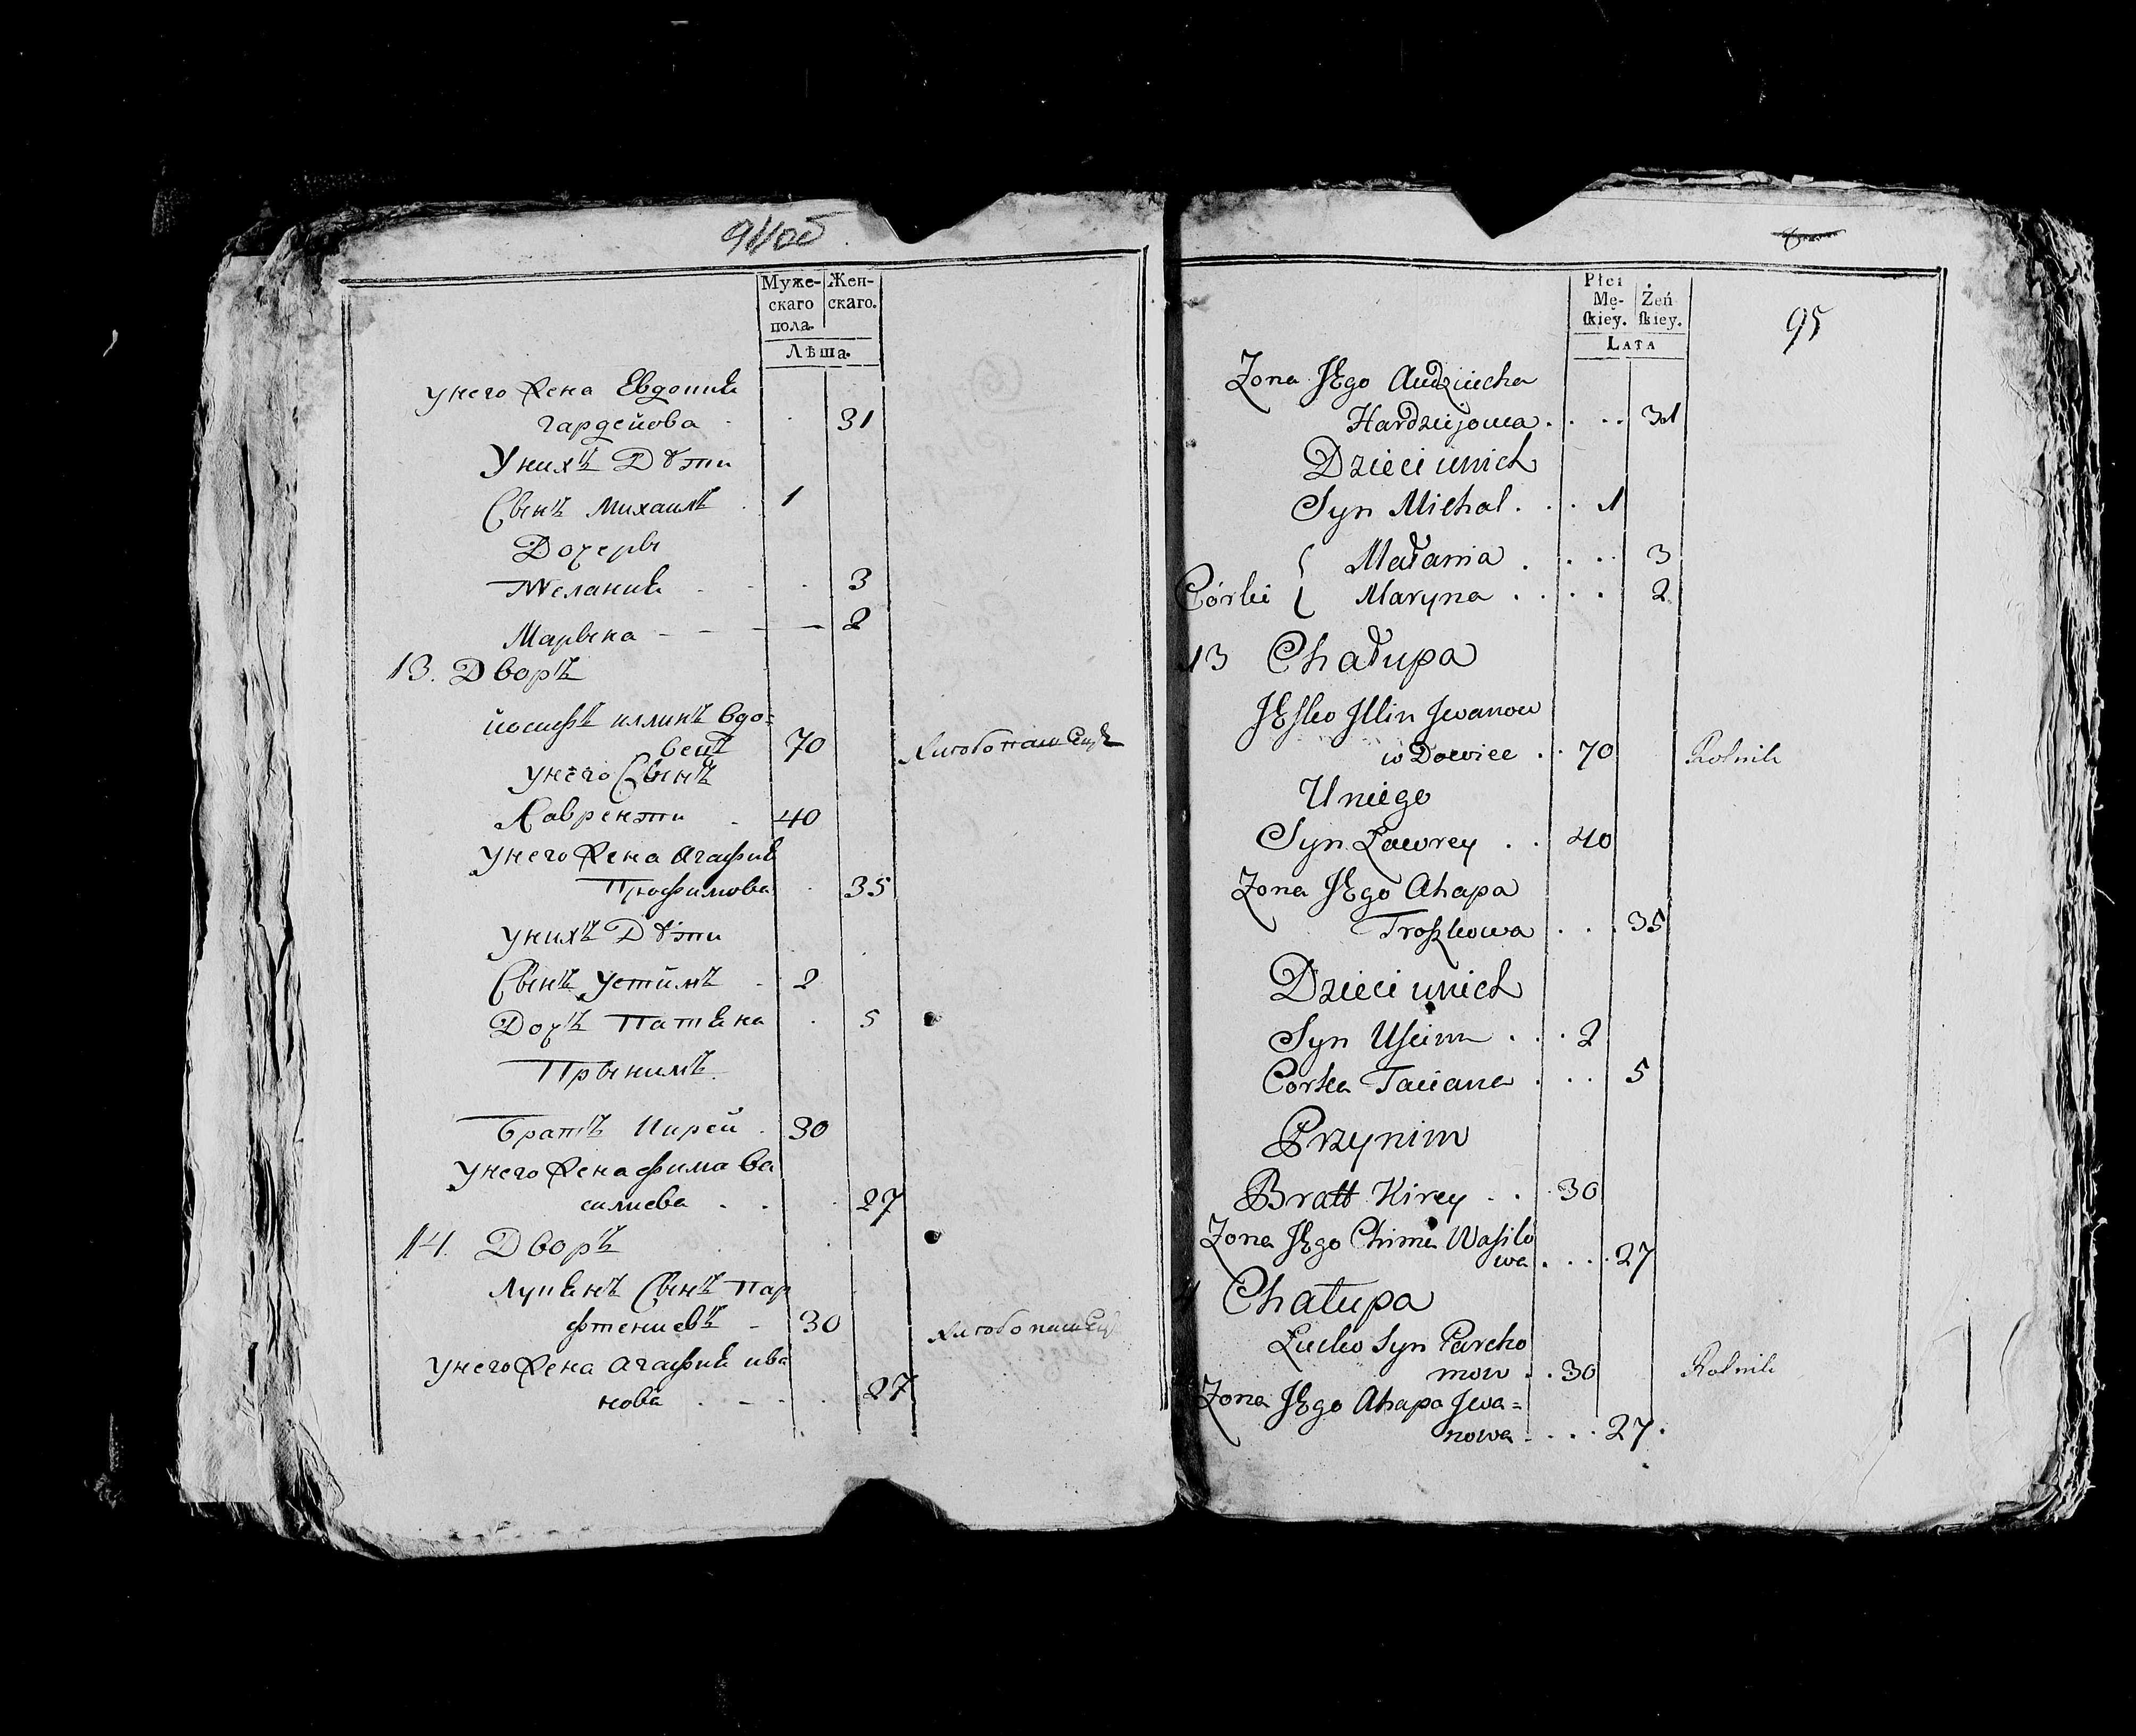 94об
Муже- Жен-
скаго скаго.
пола.
Лѣта.
унего жена Евдокия
гардеиова 31
Унихъ Дѣти
Сынъ Михаилъ 1
Дочеры
Мелания 3
Марына 2
13. Дворъ
иосифъ иллинъ вдо=
вецъ 70 хлѣбопашецъ
унего Сынъ
Лаврентий 40
унего жена Агафия
Трофимова 35
унихъ Дѣти
Сынъ Устимъ 2
Дочъ Татяна 5
Прынимъ
Братъ Кирей 30
унего жена фима ва
силиева 27
14. Дворъ
Лукянъ Сынъ пар
фтениевъ 30 хлѣбопашец
унего жена Агафия ива
нова 27
95
Płci
Mę- Żeń
skiey. skiey.
LATA
Zona JEgo Audziucha
Hardziejowa 31
Dzieci unich
Syn Michal 1
Małania 3
Córki Maryna 2
13 Chałupa
JEsko Jllin Jwanow
wDowiec 70 Rolnik
Uniego
Syn Ławrey 40
Zona JEgo Ahapa
Troszkowa 35
Dzieci unich
Syn Uscim 2
Corka Taciana 5
Przynim
Bratt Kirey 30
Zona JEgo Chima Wasilo
wa 27
4 Chałupa
Łucko Syn Parcho
mow 30 Rolnik
Zona JEgo Ahapa Jwa=
nowa 27.